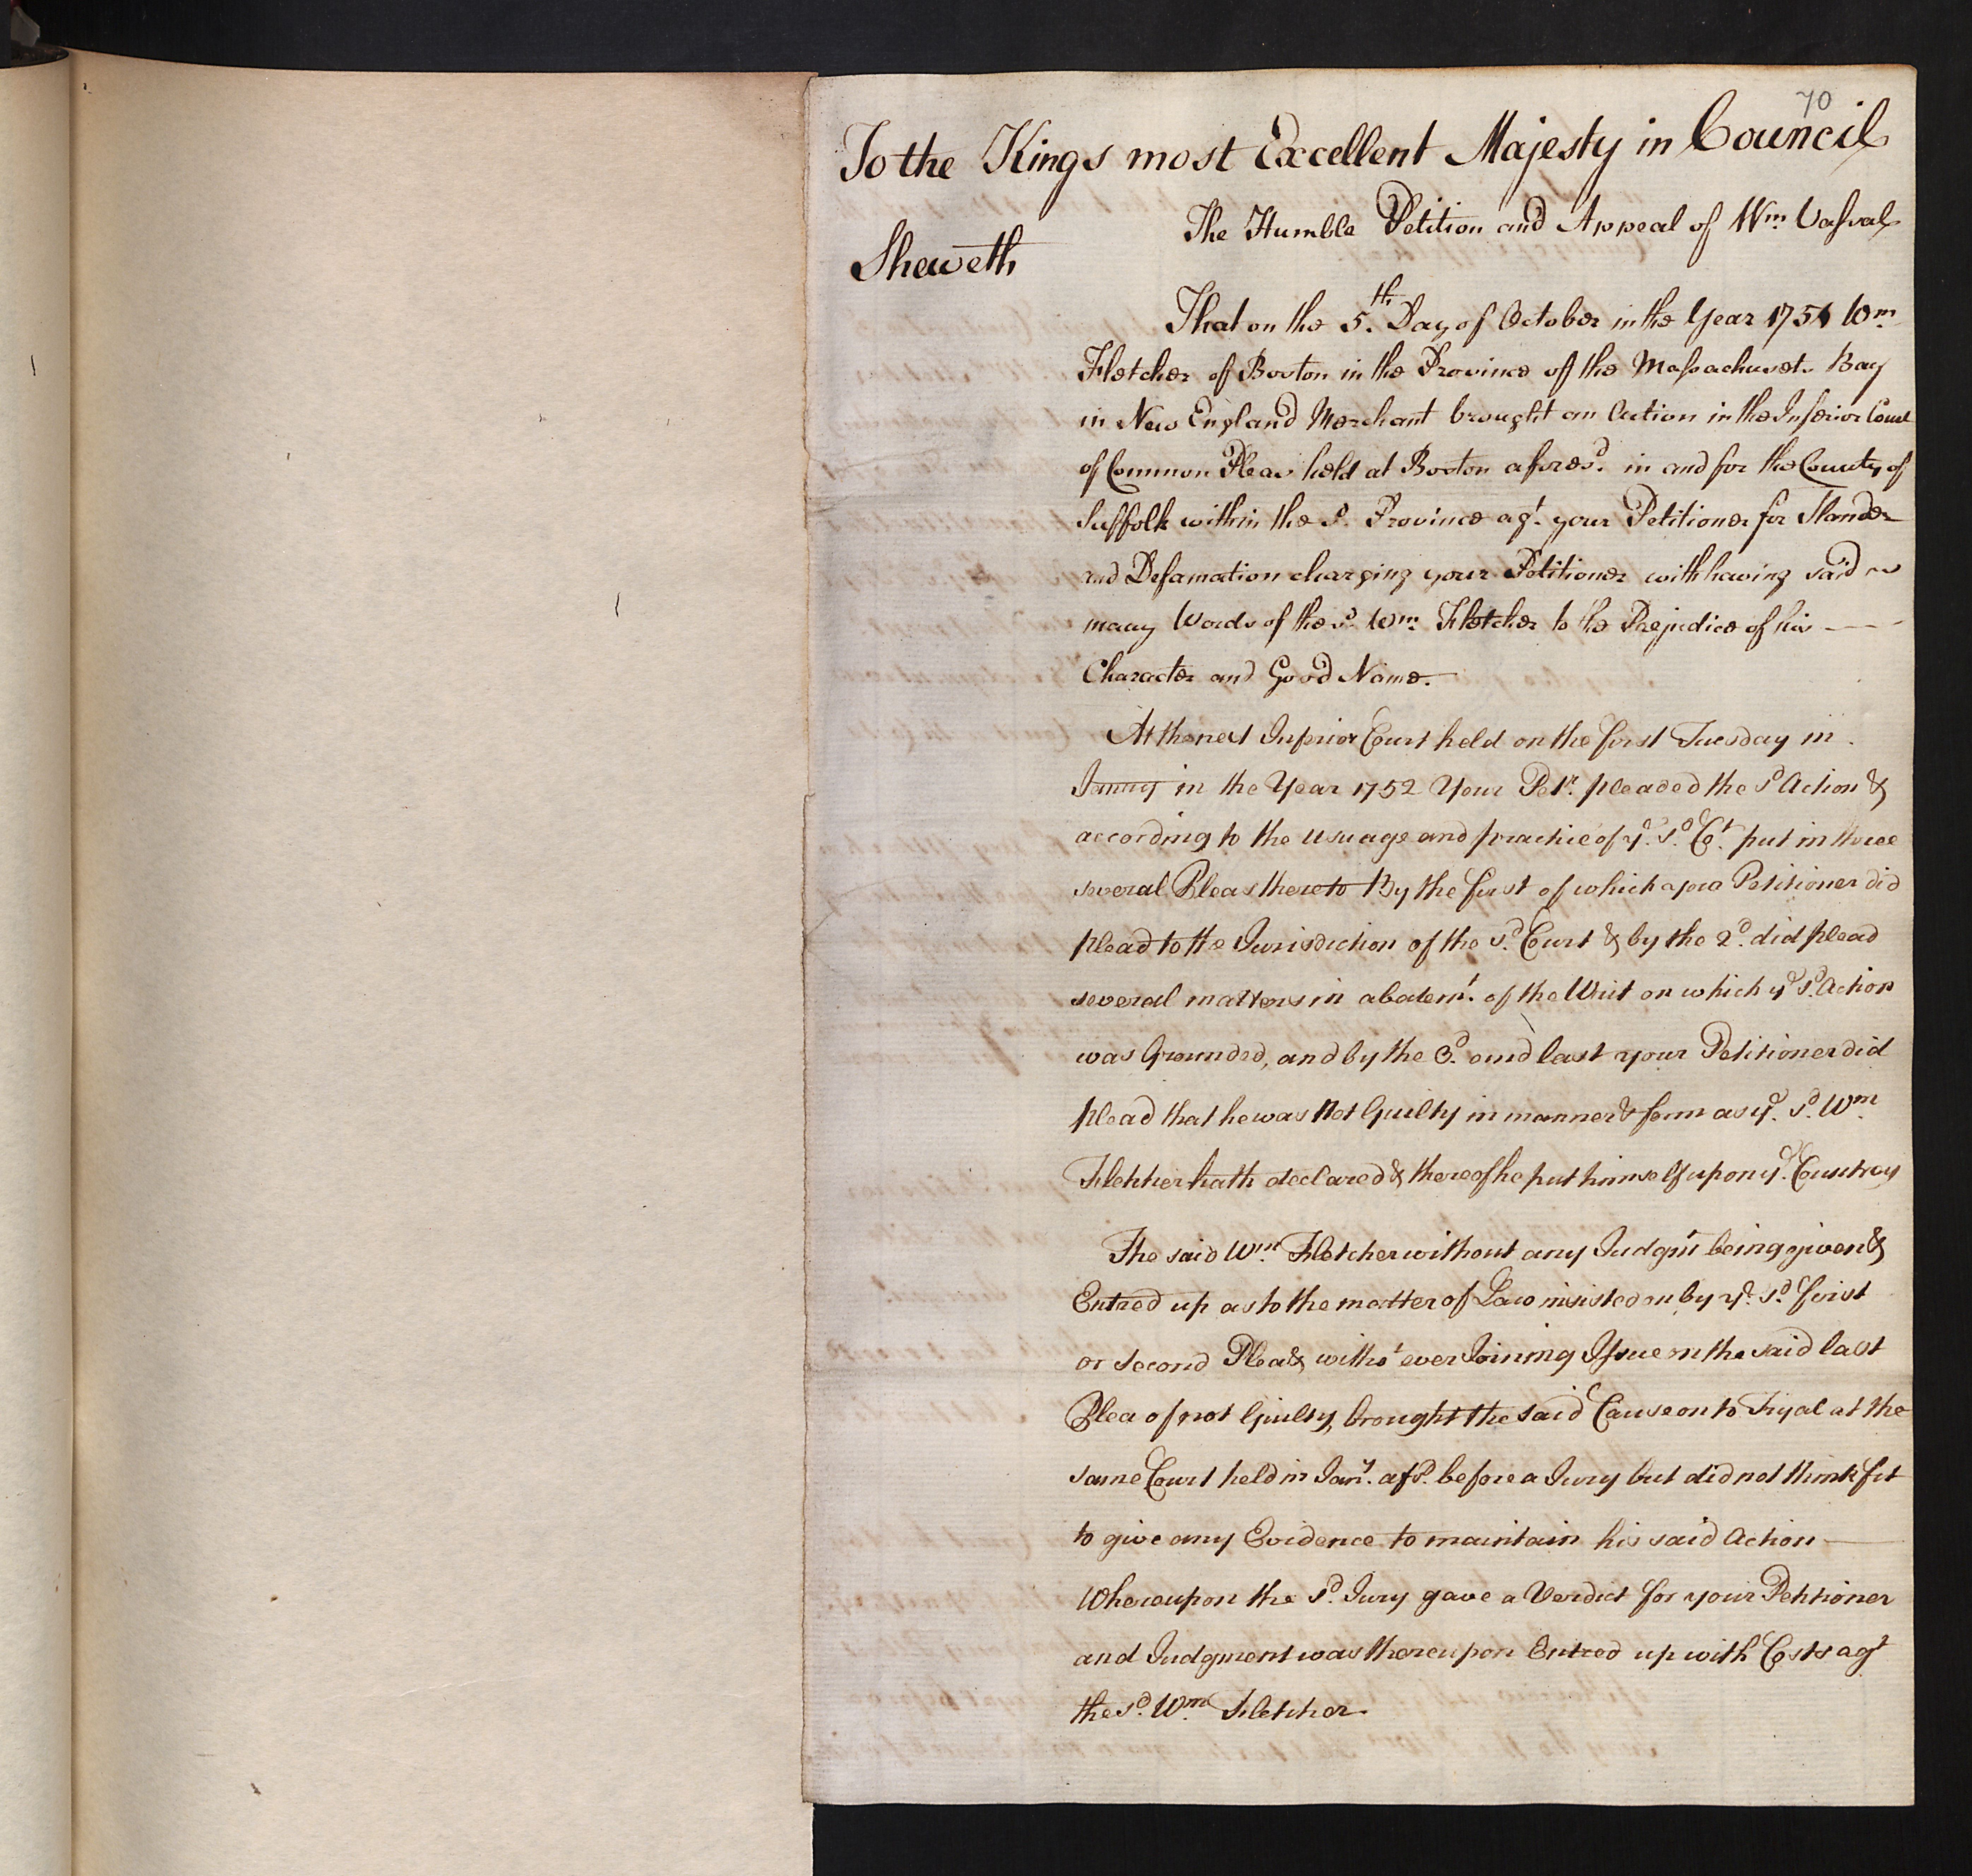 70
To the Kings most Excellent Majesty in Council
The Humble Petition and Appeal of Wm. Vassal
Sheweth
That on the 5.th Day of October in the Year 1751 Wm.
Fletcher of Boston in the Province of the Massachusets Bay
in New England Merchant brought an Action in the Inferior Court
of Common Pleas held at Boston afores.d in and for the County of
Suffolk within the s.d Province ag.t your Petitioner for Slander
and Defamation charging your Petitioner with having said
many Words of the s.d Wm. Fletcher to the Prejudice of his
Character and Good Name.
At the next Inferior Court held on the first Tuesday in
Janury in the Year 1752 Your Pet.r pleaded the s.d Action &
according to the usuage and practice of y.e s.d C.t put in three
several Pleas thereto By the first of which your Petitioner did
plead to the Jurisdiction of the s.d Court & by the 2.d did plead
several matters in abatem.t of the Writ on which y.e s.d Action
was Grounded, and by the 3.d and last your Petitioner did
plead that he was Not Guilty in manner & form as y.e s.d Wm.
Fletcher hath declared & thereof he put himself upon y.e Country
The said Wm. Fletcher without any Judgm't being given &
Entred up as to the matter of Law insisted on by y.e s.d first
or second Plea & witho.t ever Joining Issue on the said last
Plea of not Guilty, brought the said Cause on to Tryal at the
same Court held in Jan.y afs.d before a Jury but did not think fit
to give any Evidence to maintain his said Action
Whereupon the s.d Jury gave a Verdict for your Petitioner
and Judgment was thereupon Entred up with Costs ag.t
the s.d Wm. Fletcher.